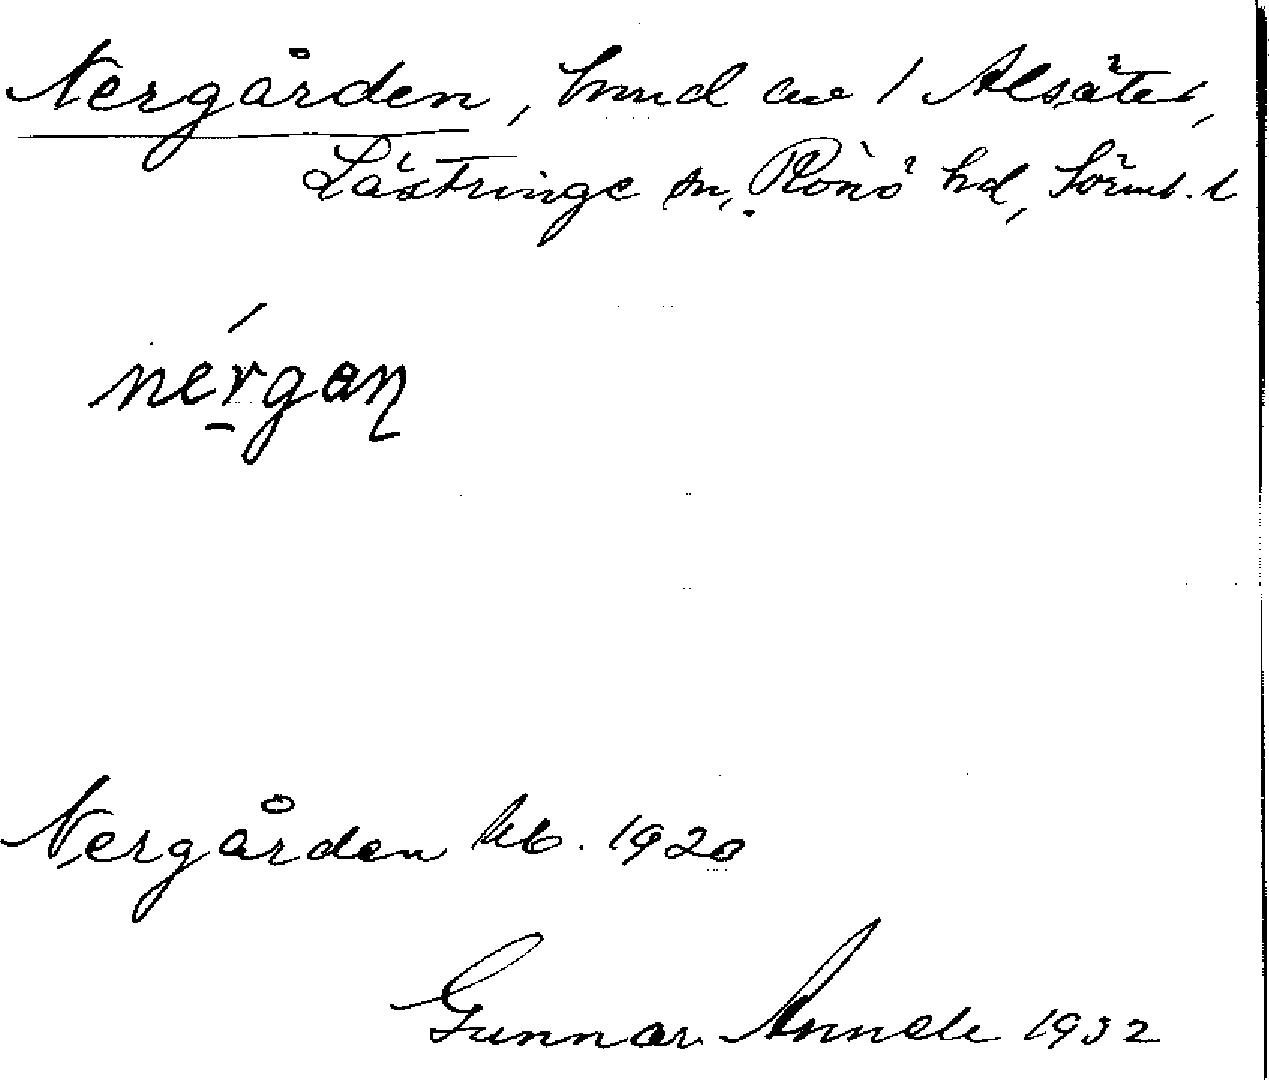 Nergården, hmd av 1 Alsäter,
Lästringe sn, Rönö hd, Sörml. l
nérgaɳ
Nergården kb. 1920
Gunnar Annell 1932